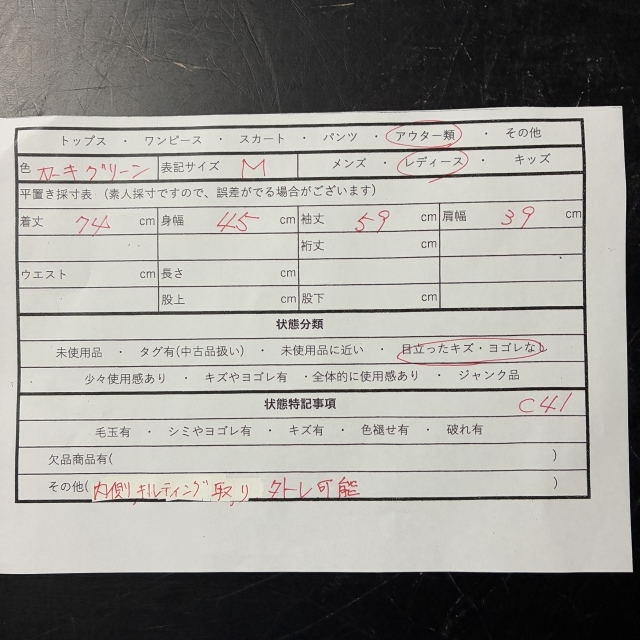 トップス ・ ワンピース ・ スカート ・ パンツ ・ アウター類 ・ その他
色 カーキグリーン 表記サイズ M メンズ ・ レディース ・ キッズ
平置き採寸表（素人採寸ですので、誤差がでる場合がございます）
着丈 74 cm 身幅 45 cm 袖丈 59 cm 肩幅 39 cm
裄丈 cm
ウエスト cm 長さ cm
股上 cm 股下 cm
状態分類
未使用品 ・ タグ有(中古品扱い) ・ 未使用品に近い ・ 目立ったキズ・ヨゴレなし
・ 少々使用感あり ・ キズやヨゴレ有 ・全体的に使用感あり ・ ジャンク品
状態特記事項 C41
毛玉有 ・ シミやヨゴレ有 ・ キズ有 ・ 色褪せ有 ・ 破れ有
欠品商品有( )
その他(内側キルティング取り外し可能 )